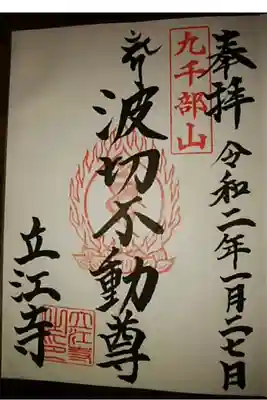 奉拝
令和二年一月二七日
九千部山
波切不動尊
立江寺